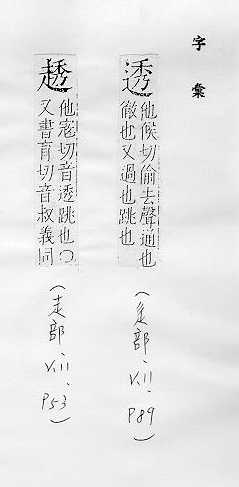 字彙
透
他候切偷去聲通也
徹也又過也跳也
(辵部、Vii、P89)
趒
他宼切音透跳也〇
又書育切音叔義同
(走部、Vii、P53)